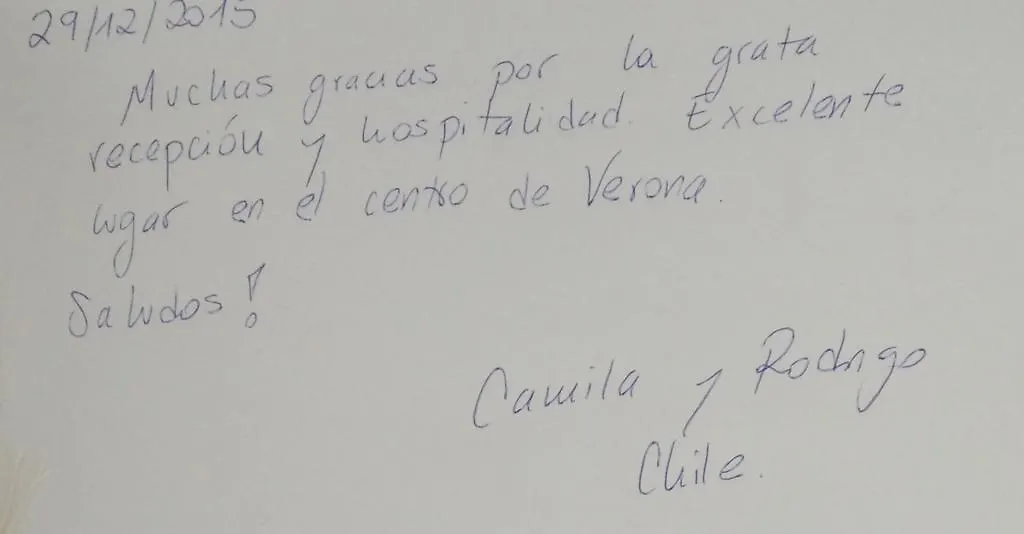 29/12/2015
Muchas gracias por la grata
recepción y hospitalidad. Excelente
lugar en el centro de Verona.
Saludos!
Camila y Rodrigo
Chile.